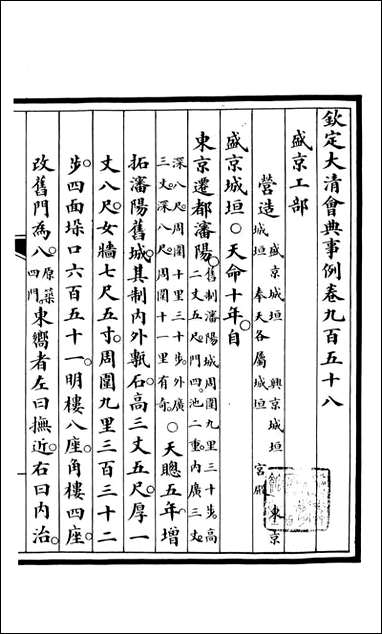 欽定大清會典事例卷九百五十八
盛京工部
營造 盛京城垣 興京城垣 東京
城垣 奉天各屬城垣 宮殿
盛京城垣○天命十年自
東京遷都瀋陽。舊制瀋陽城周圍九里三十步高
二丈五尺門四池二重內廣三丈
深八尺周圍十里三十步外廣
三丈深八尺周圍十一里有奇。○天聰五年增
拓瀋陽舊城。其制內外甎石。高三丈五尺。厚一
丈八尺。女牆七尺五寸。周圍九里三百三十二
步。四面垛口六百五十一。明樓八座。角樓四座。
改舊門為八。原築四門。東嚮者左曰撫近。右曰內治。